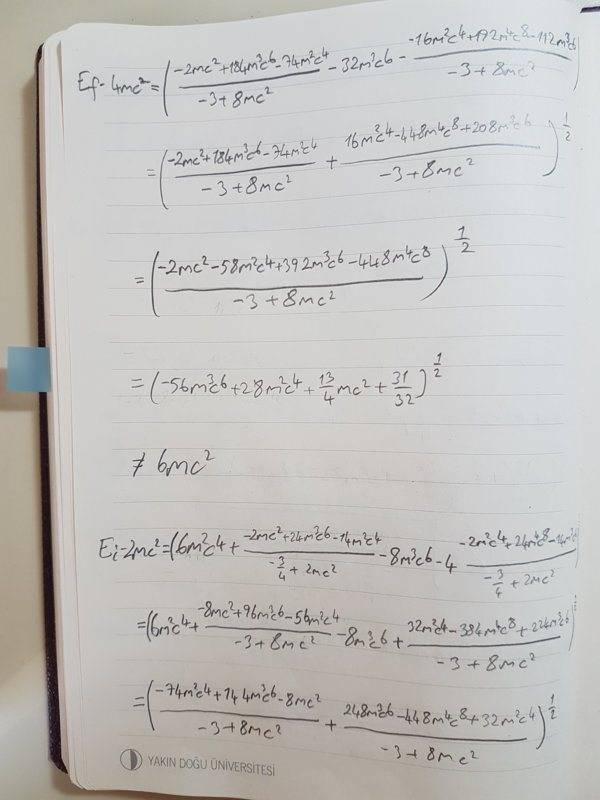 Ef-4mc² = ((-2mc²+184m³c⁶-74m²c⁴)/(-3+8mc²) - 32m³c⁶ - (-16m²c⁴+192m⁴c⁸-112m³c⁶)/(-3+8mc²))
= ((-2mc²+184m³c⁶-74m²c⁴)/(-3+8mc²) + (16m²c⁴-448m⁴c⁸+208m³c⁶)/(-3+8mc²))^(1/2)
= ((-2mc²-58m²c⁴+392m³c⁶-448m⁴c⁸)/(-3+8mc²))^(1/2)
= (-56m³c⁶+28m²c⁴+(13/4)mc²+31/32)^(1/2)
≠ 6mc²
Ei-2mc² = (6m²c⁴+(-2mc²+24m³c⁶-14m²c⁴)/(-3/4+2mc²) - 8m³c⁶ - 4 (-2m²c⁴+24m⁴c⁸-14m³c⁶)/(-3/4+2mc²))
= (6m²c⁴+(-8mc²+96m³c⁶-56m²c⁴)/(-3+8mc²) - 8m³c⁶ + (32m²c⁴-384m⁴c⁸+224m³c⁶)/(-3+8mc²))^(1/2)
= ((-74m²c⁴+144m³c⁶-8mc²)/(-3+8mc²) + (248m³c⁶-448m⁴c⁸+32m²c⁴)/(-3+8mc²))^(1/2)
YAKIN DOĞU ÜNİVERSİTESİ